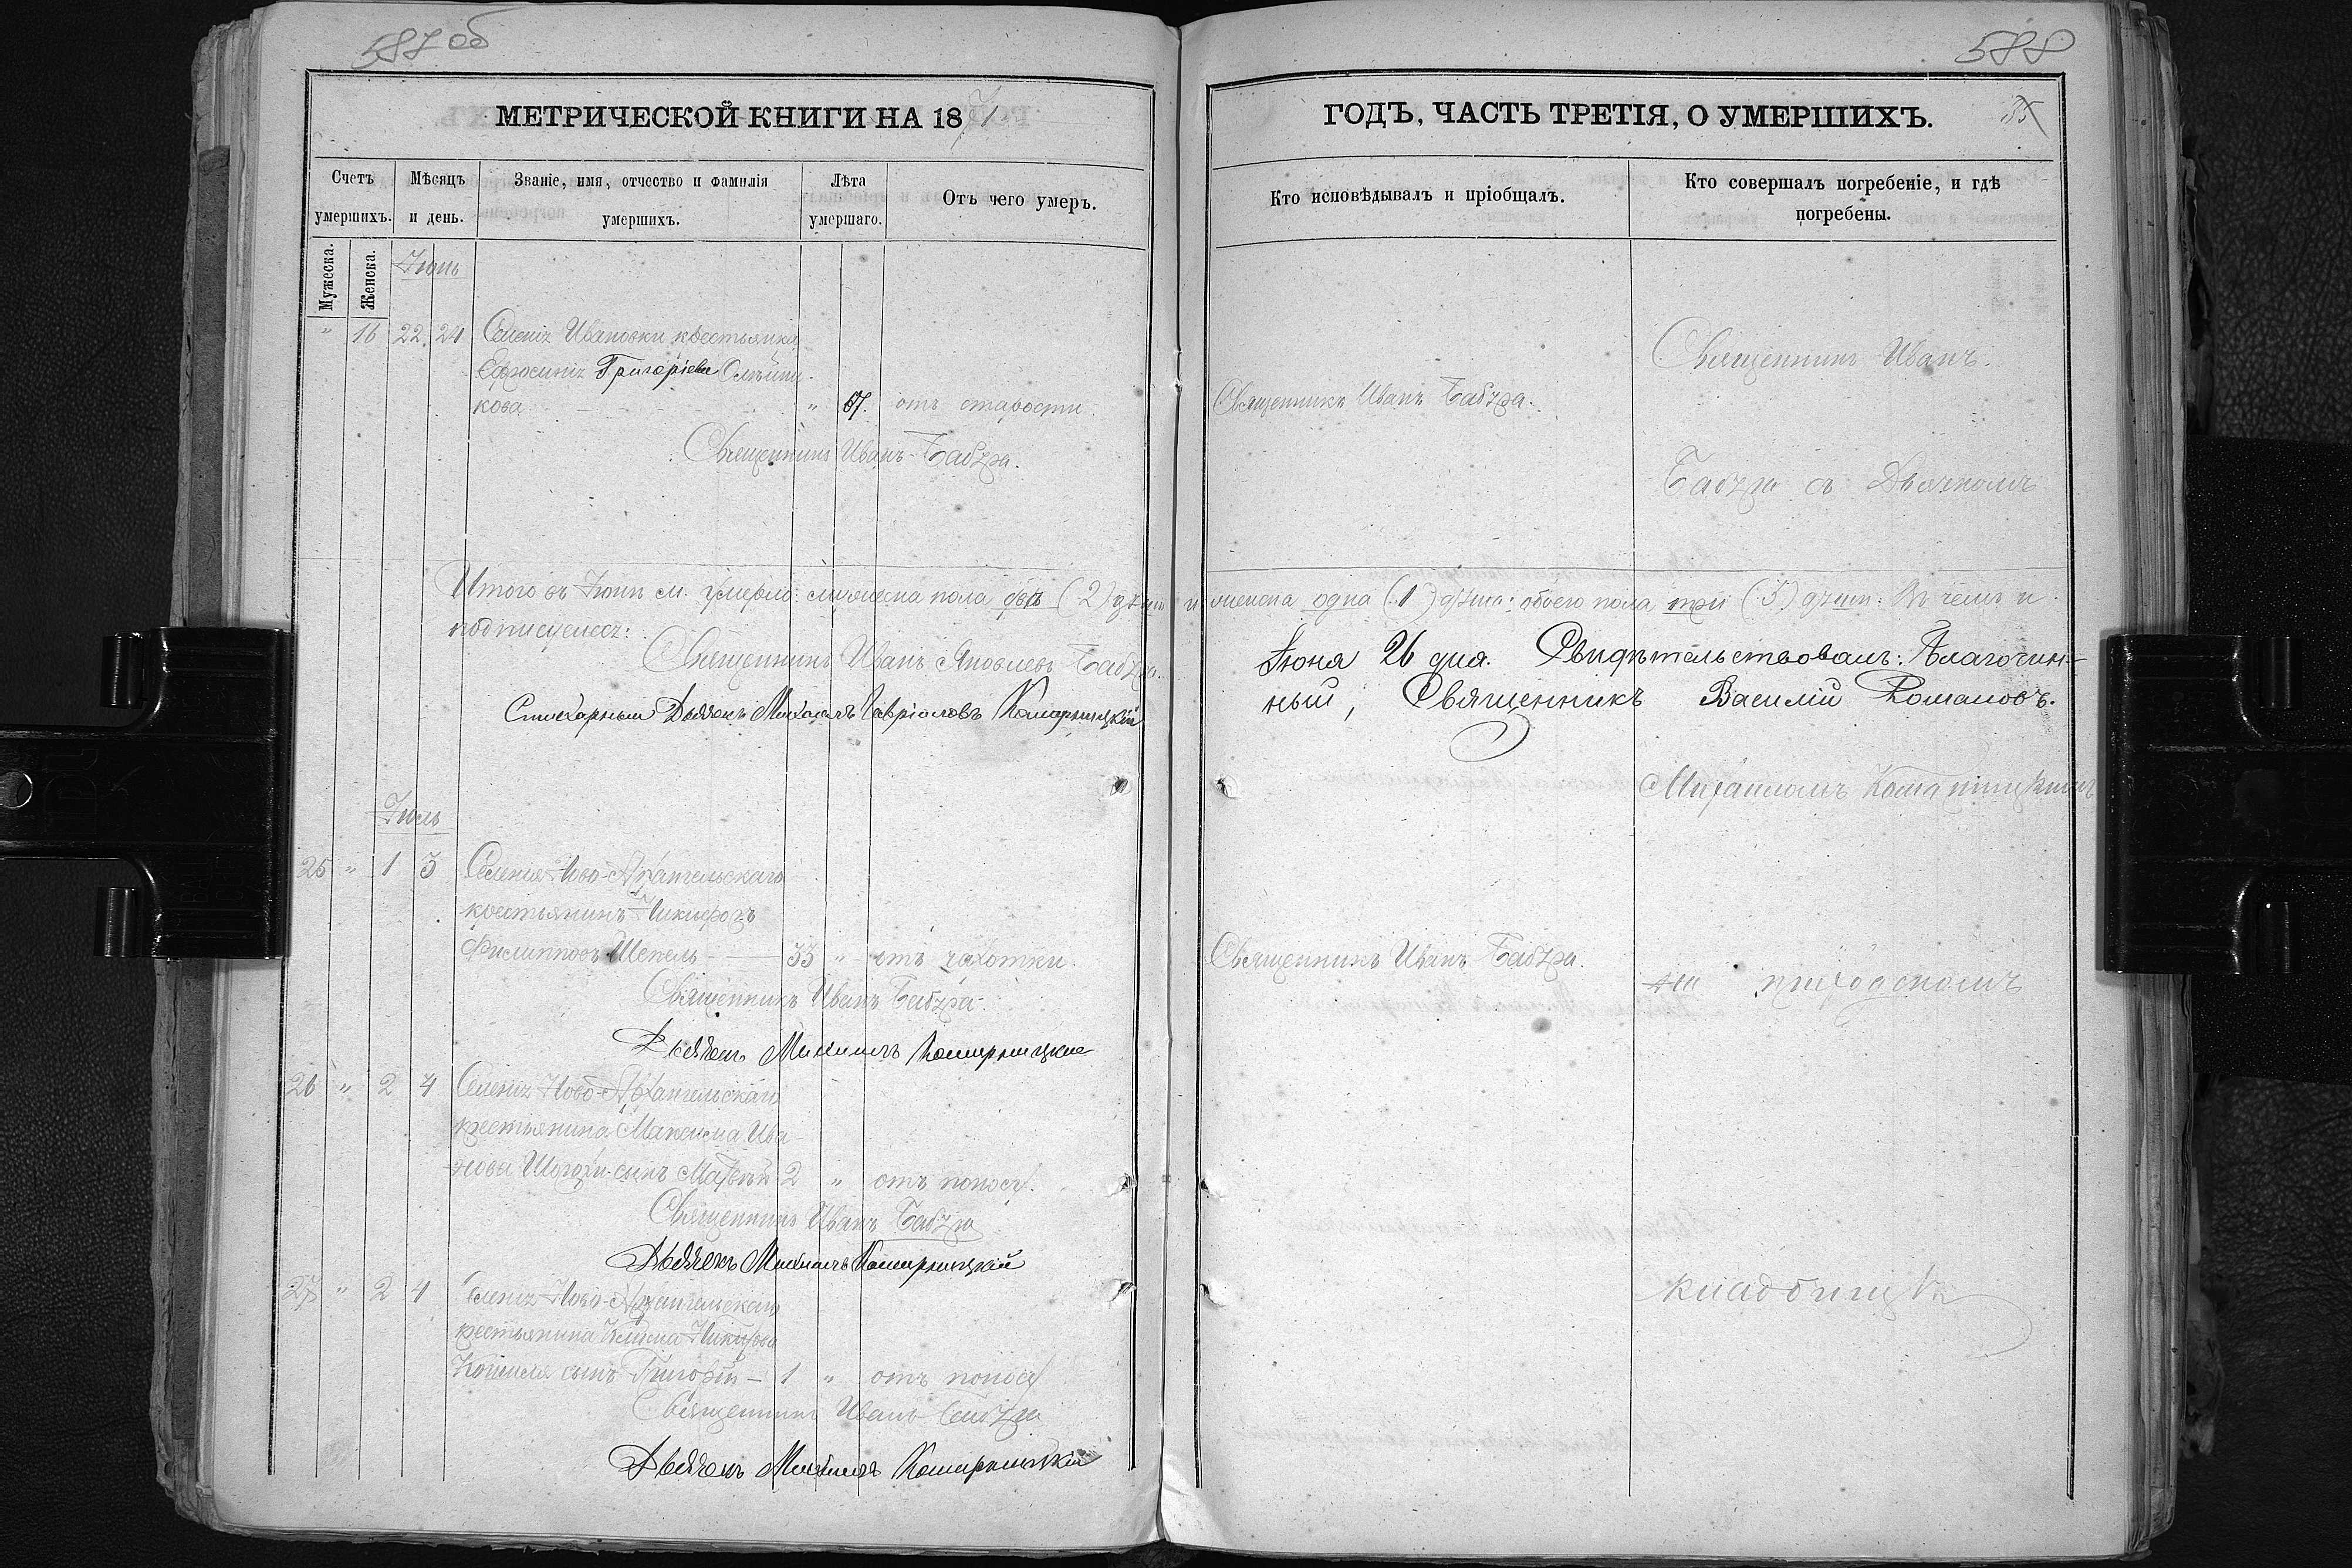 587 об
МЕТРИЧЕСКОЙ КНИГИ НА 1871
Счетъ умершихъ.
Мѣсяцъ и день.
Званіе, имя, отчество и фамилія умершихъ.
Лѣта умершаго.
Отъ чего умеръ.
Мужеска.
Женска.
Іюнь
" 16 22. 24 Селенія Ивановки крестьянка
Ефросинія Григоріева Олѣйни-
кова " 67. отъ старости
Священникъ Иванъ Бабура.
Итого въ Іюнѣ м. умерло: мужеска пола два (2) души и женска одна (1) душа: обоего пола три (3) души: Въ чемъ и
подписуемся:
Священникъ Иванъ Яковлевъ Бабура.
Стихарный Дьячекъ Михаилъ Гавріиловъ Комарницкій
Іюль
25 " 1 3 Селенія Ново-Архангельскаго
крестьянинъ Никифоръ
Филипповъ Шепель — 33 " отъ чахотки.
Священникъ Иванъ Бабура.
Дьячекъ Михаилъ Комарницкій
26 " 2 4 Селенія Ново-Архангельскаго
крестьянина Максима Ива-
нова сынъ Матвѣй 2 " отъ поноса.
Священникъ Иванъ Бабура
Дьячекъ Михаилъ Комарницкій
27 " 2 4 Селенія Ново-Архангельскаго
крестьянина Климa
сынъ Григорій — 1 " отъ поноса
Священникъ Иванъ Бабура
Дьячекъ Михаилъ Комарницкій
588
ГОДЪ, ЧАСТЬ ТРЕТІЯ, О УМЕРШИХЪ.
35
Кто исповѣдывалъ и пріобщалъ.
Кто совершалъ погребеніе, и гдѣ погребены.
Священникъ Иванъ.
Священникъ Иванъ Бабура.
Бабура съ Дьячкомъ
Іюня 26 дня. Свидѣтельствовалъ: Благочин-
ный, Священникъ Василій Романовъ.
Михаиломъ Комарницкимъ
Священникъ Иванъ Бабура.
на приходскомъ
кладбищѣ